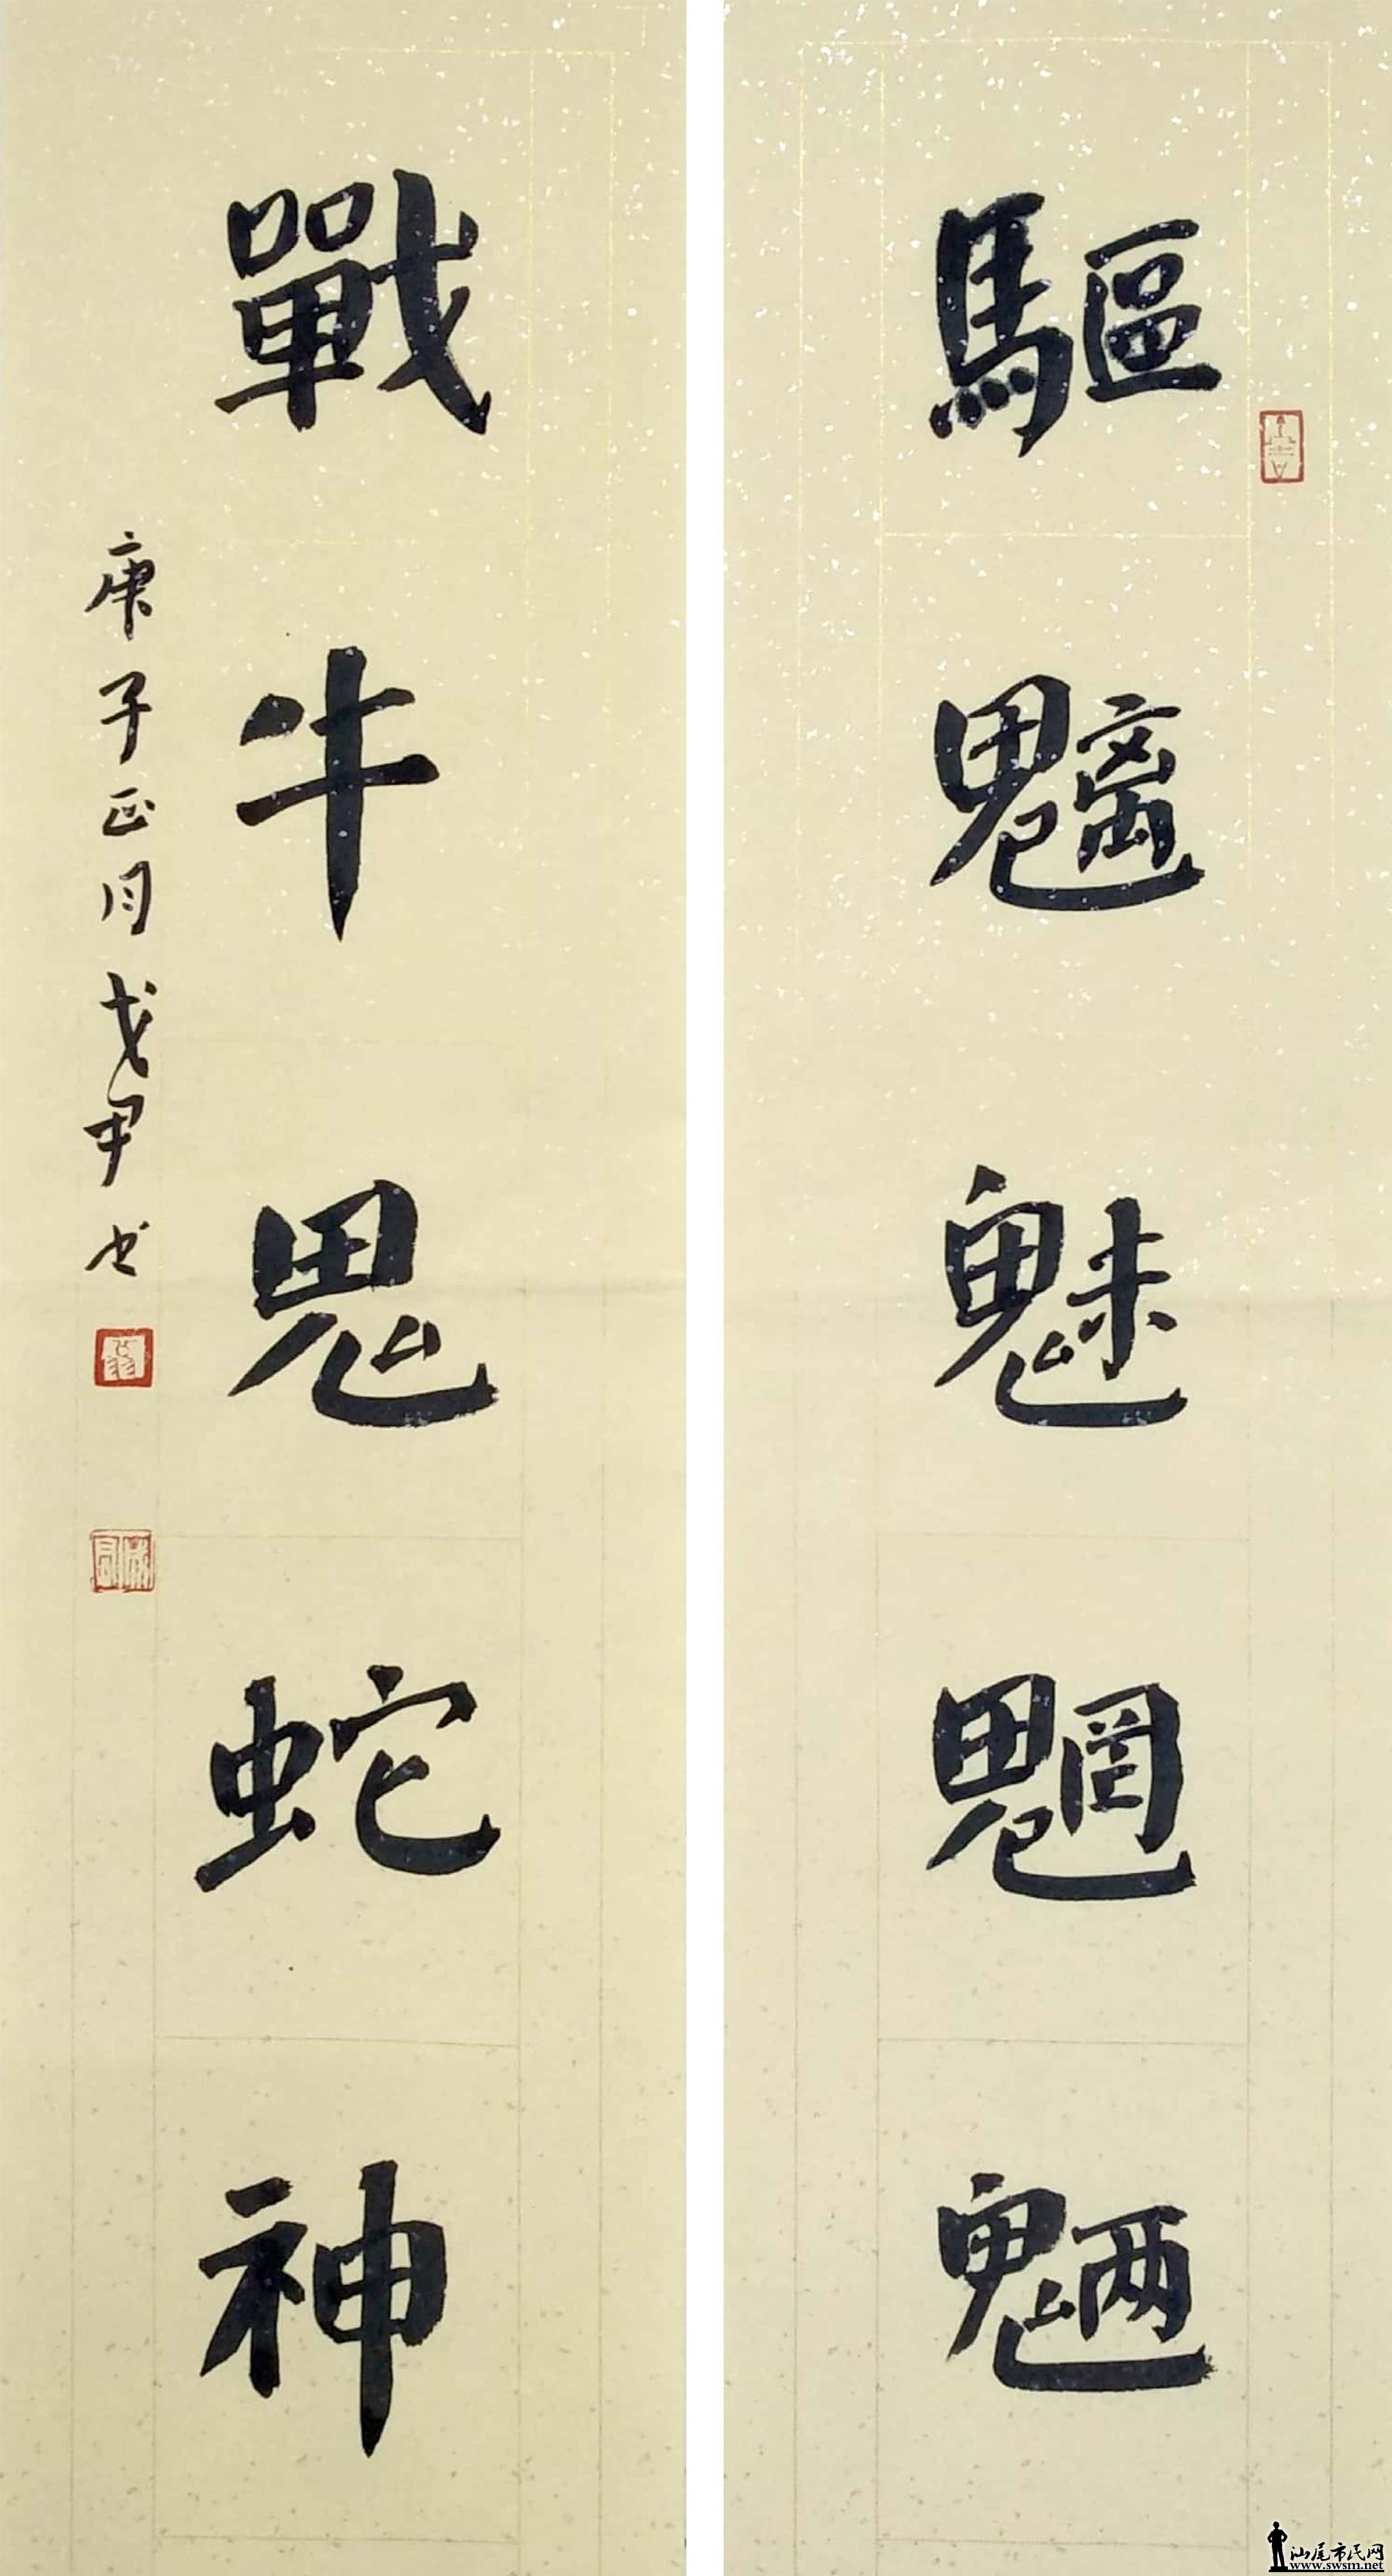 驅魑魅魍魎
戰牛鬼蛇神
庚子正月戈甲书
汕尾市民网
www.swsm.net